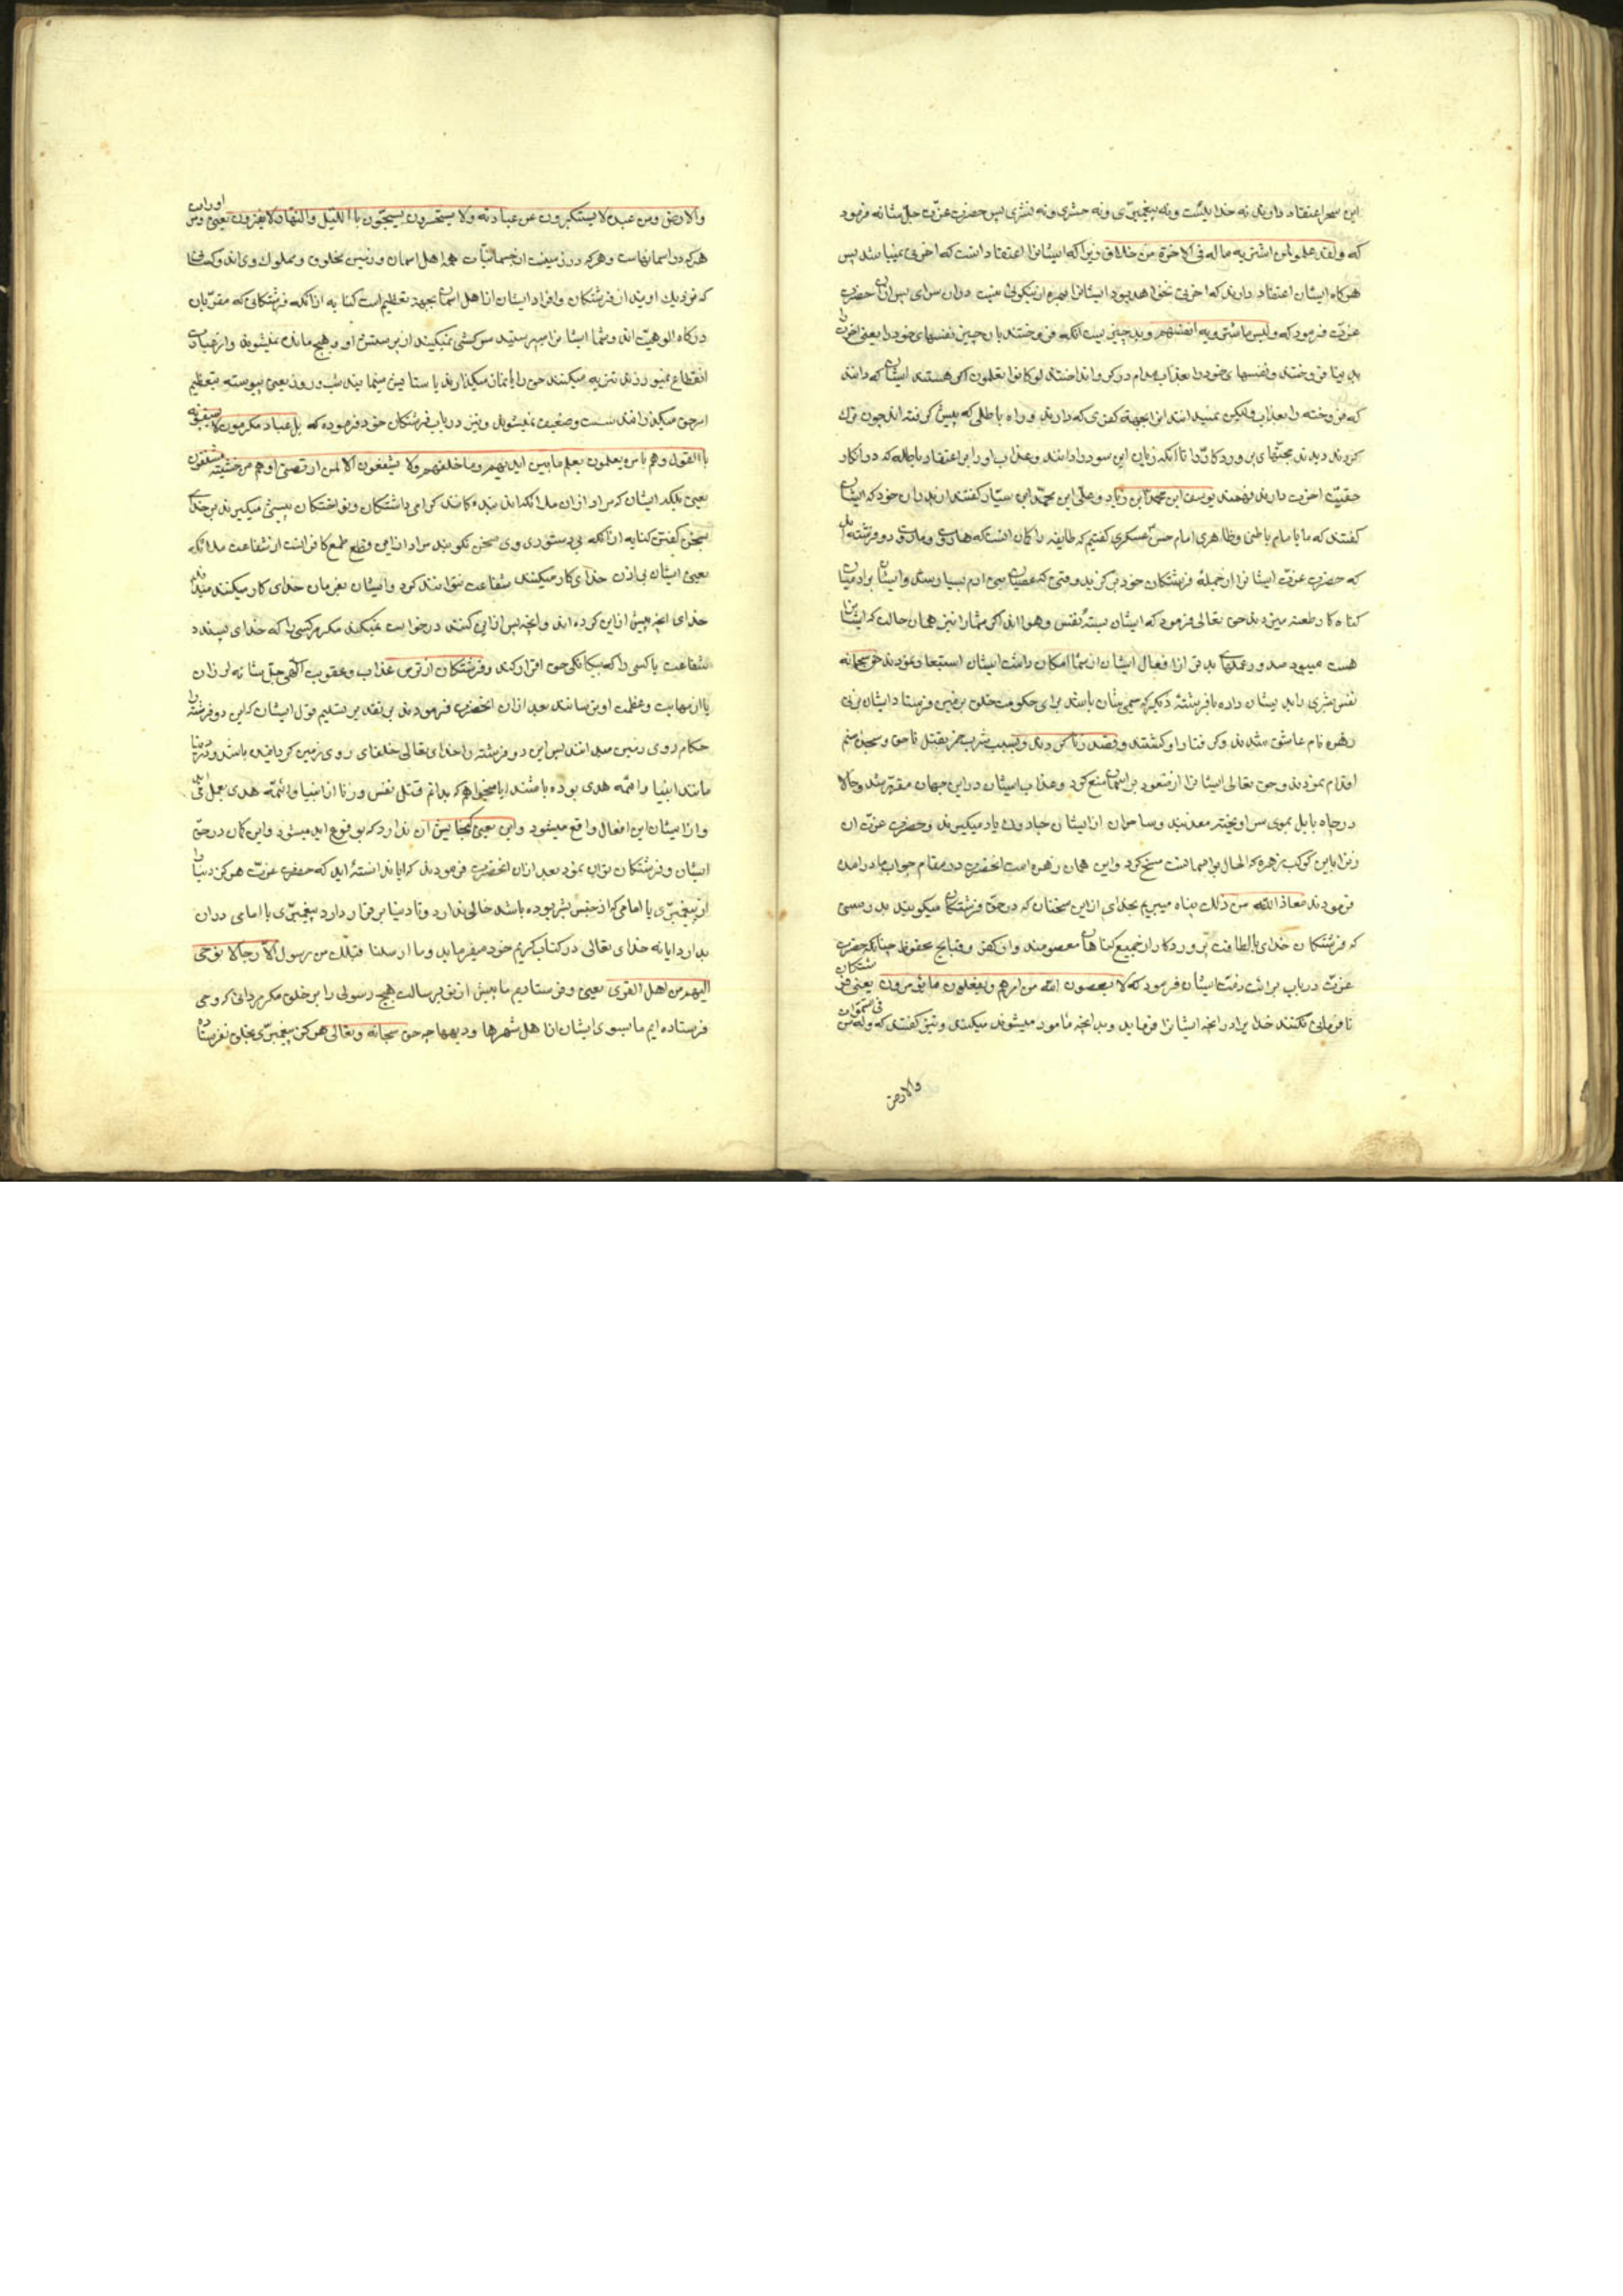 این سحر اعتقاد دارند نه خدا یست ونه پیغمبری ونه حشری ونه نشری پس حضرت عزت جل شانه فرمود
که ولقد علموا لمن اشتریه ماله فی الاخرة من خلاق زیرا که ایشانرا اعتقاد انست که اخرتی نمیباشد پس
هرکاه ایشان اعتقاد دارند که اخرتی نخواهد بود ایشانرا بهره از نیکوئی نیست دران سرای پس ازان حضرت
عزت فرمود که ولبئس ما شروا به انفسهم وبد چیزیست انکه فروختند بان چیز نفسهای خودرا یعنی اخرت را
بدنیا فروختند ونفسهای خودرا بعذاب مدام در کرو انداختند لوکانوا یعلمون اکر هستند ایشان که دانند
که فروخته را بعذاب ولیکن نمیدانند این ابجهة کفری که دارند و راه باطلی که پیش کرفته اند چون ترک
کردند دیدند بحجتهای پروردکار را تا انکه زیان این سودرا دانند وعذاب اورا بر اعتقاد باطله که در انکار
حقیت اخرت دارند نفهمند یوسف ابن محمد ابن زیاد وعلی ابن محمد ابن سیار کفتند از پدران خود که ایشان
کفتند که ما با امام باطن وظاهری امام حسن عسکری کفتیم که طایفه را کمان انست که هاروت وماروت دو فرشته اند
که حضرت عزت ایشانرا از جملهٔ فرشتکان خود برکزید وقتی که عصیان بنی ادم بسیار شد وایشان برادمیان
کناه کار طعنه میزدند حق تعالی فرمود که ایشان بستهٔ نفس وهوا اند اکر شمارا نیز همان حالت که ایشانرا
هست میبود صدور عملهای بدتر از افعال ایشان از شما امکان داشت ایشان استبعاد نمودند حق سبحانه
نفس بشری را بدیشان داده با فرشتهٔ دیکر که سیمی شان باشد برای حکومت خلق بزمین فرستاد ایشان بزنی
زهره نام عاشق شدند وکرفتار او کشتند وقصد زنا کردند وبسبب شرب خمر بقتل ناحق وسجدهٔ صنم
اقدام نمودند وحق تعالی ایشانرا از صعود بر اسمان منع کرد وعذاب ایشان در این جهان مقرر شد وحالا
در چاه بابل بموی سر اویخته معذبند وساحران از ایشان جادوی یاد میکیرند وحضرت عزت ان
زنرا باین کوکب زهره که الحال بر اسمانست مسخ کرد واین همان زهره است انحضرت در مقام جواب مادر امده
فرمودند معاذ الله من ذلک پناه میبریم بخدای از این سخنان که در حق فرشتکان میکویند بدرستی
که فرشتکان خدای بالطافت پروردکار از جمیع کناهان معصومند واز کفر وقبایح محفوظ چنانکه حضرت
عزت در باب برائت ذمت ایشان فرمود که لا یعصون الله من امرهم ویفعلون ما یؤمرون یعنی فرشتکان
نا فرمانی نکنند خدایرا در انچه ایشانرا فرماید وبدانچه مامور میشوند میکنند ونیز کفتند که وله من فی السموات
والارض
والارض ومن عنده لا یستکبرون عن عبادته ولا یستحسرون یسبحون باالللیل والنهار لا یفترون یعنی اوراست
هر که در اسمانهاست وهر که در زمینست از جسمانیات همه اهل اسمان وزمین مخلوق ومملوک وی اند وکسانی
که نزدیک اویند از فرشتکان وافراد ایشان از اهل اسمان بجهة تعظیم است کنایه از انکه فرشتکانی که مقربان
درکاه الوهیت اند وشما ایشانرا میپرستید سرکشی نمیکنند از پرستش او وهیچ مانده نمیشوند واز عبادت
انقطاع نمیورزند تنزیه میکنند حق را یا نماز میکذارند یا ستایش مینمایند شب وروز یعنی پیوسته بتعظیم
امر حق میکذرانند سست وضعیف نمیشوند ونیز در باب فرشتکان خود فرموده که بل عباد مکرمون لا یسبقونه
باالقول وهم بامره یعلمون یعلم ما بین ایدیهم وما خلفهم ولا یشفعون الا لمن ارتضی وهم من خشیته مشفقون
یعنی بلکه ایشان که مراد ازان ملائکه اند بندهٔ کانند کرامی داشتکان ونواختکان پیشی نمیکیرند بر خدای
بسخن کفتن کنایه از انکه بی دستوری وی سخن نکویند مراد از این قطع طمع کافرانست از شفاعت ملائکه
یعنی ایشان بی اذن خدای کار میکنند شفاعت نتوانند کرد وایشان بفرمان خدای کار میکنند میداند
خدای انچه پیش از این کرده اند وانچه پس از این کنند درخواست نمیکند مکر هر کسی را که خدای پسندد
شفاعت یا کسی را که بیکانکی حق اقرار کند وفرشتکان از ترس عذاب وعقوبت الهی جل شانه لرزان
یا از مهابت وعظمت او ترسانند بعد ازان انحضرت فرمودند بر تقدیر تسلیم قول ایشان که این دو فرشته را
حکام روی زمین میدانند پس این دو فرشته را خدای تعالی خلفای روی زمین کردانیده باشد ودر دنیا
مانند انبیا وائمه هدی بوده باشند ایا میخواهم که بدانم قتل نفس وزنا از انبیا وائمه هدی بعمل می اید
واز ایشان این افعال واقع میشود واین یعنی کنجایش ان ندارد که بوقوع اید میشود واین کمان در حق
ایشان وفرشتکان نتوان نمود بعد ازان انحضرت فرمودند که ایا ندانستهٔ اید که حضرت عزت هرکز دنیا را
از پیغمبری یا امامی که از جنس بشر بوده باشد خالی ندارد وتا دنیا برقرار دارد پیغمبری یا امامی دران
بدارد ایا نه خدای تعالی در کتاب کریم خود میفرماید وما ارسلنا قبلک من رسول الا رجالا نوحی
الیهم من اهل القری یعنی وفرستادیم ما پیش از تو برسالت هیچ رسولی را بر خلق مکر مردانی که وحی
فرستاده ایم ما بسوی ایشان از اهل شهرها ودیهها چه حق سبحانه وتعالی هرکز پیغمبری بخلق نفرستاد